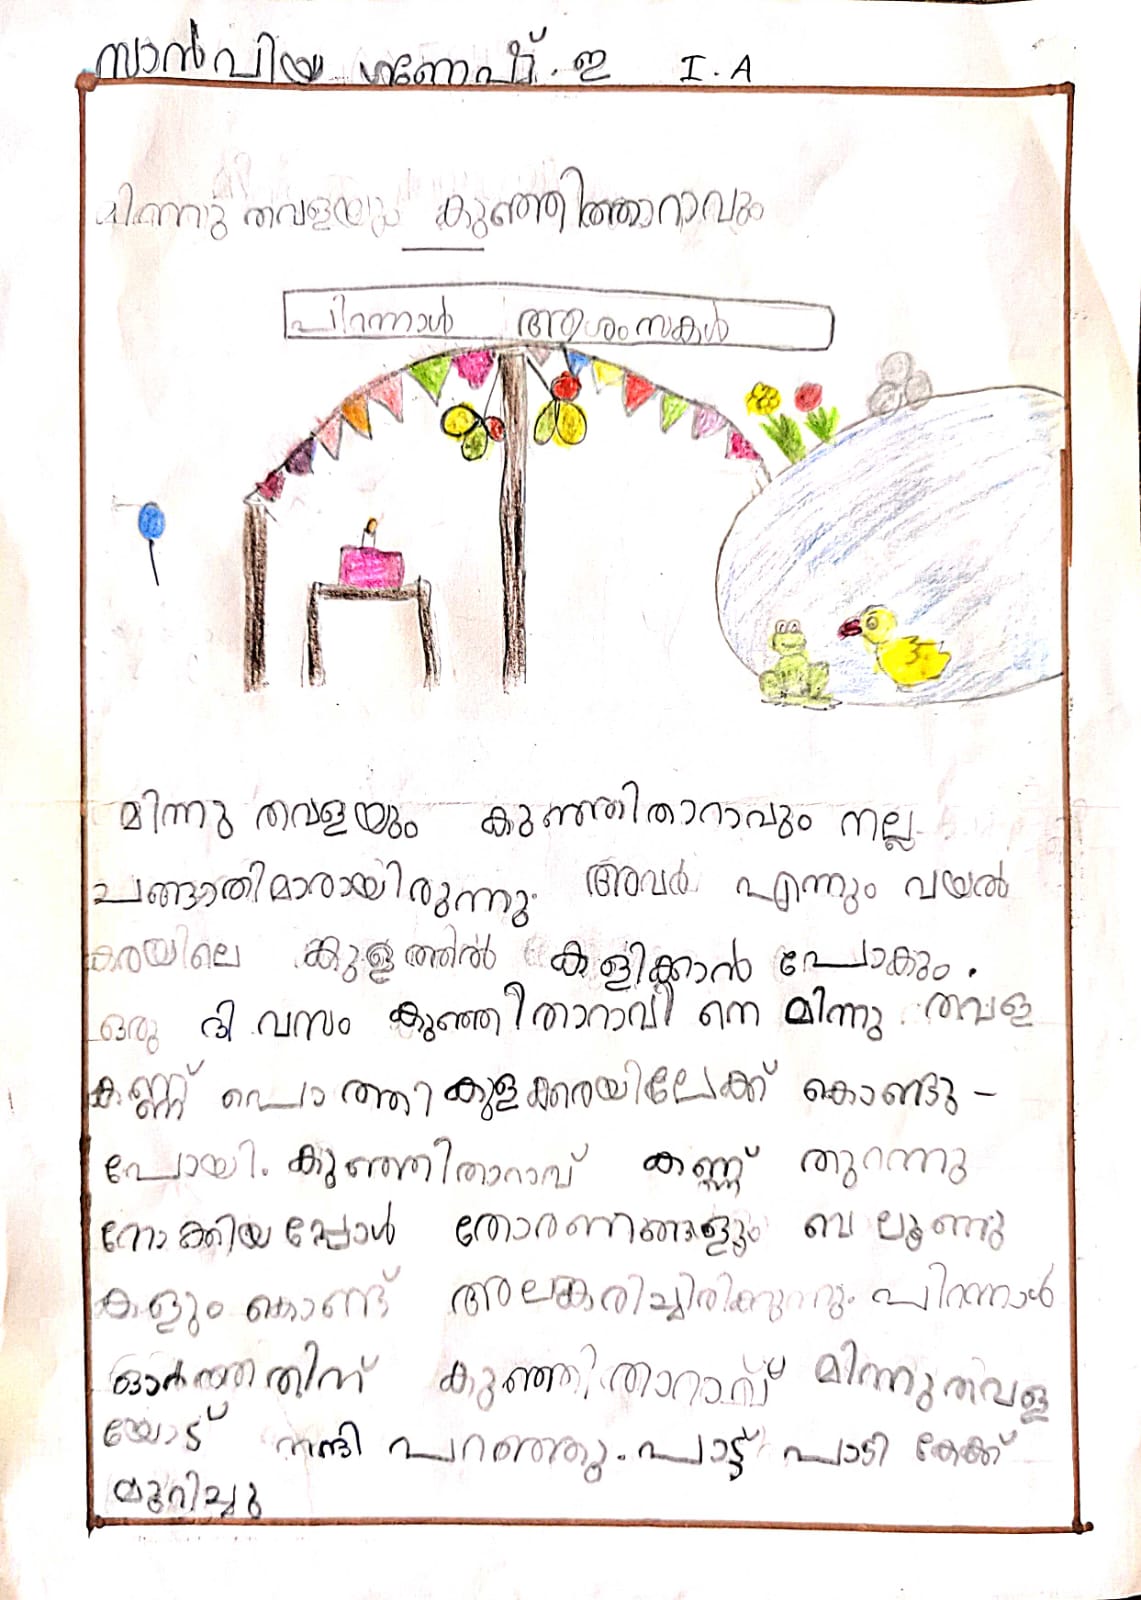 സാൻവിയ ഗണേഷ്. ഇ I. A
മിന്നു തവളയും കുഞ്ഞിത്താറാവും
പിറന്നാൾ ആശംസകൾ
മിന്നു തവളയും കുഞ്ഞിതാറാവും നല്ല
ചങ്ങാതിമാരായിരുന്നു. അവർ എന്നും വയൽ
കരയിലെ കുളത്തിൽ കളിക്കാൻ പോകും.
ഒരു ദിവസം കുഞ്ഞിതാറാവിനെ മിന്നു തവള
കണ്ണ് പൊത്തി കുളക്കരയിലേക്ക് കൊണ്ടു -
പോയി. കുഞ്ഞിതാറാവ് കണ്ണ് തുറന്നു
നോക്കിയപ്പോൾ തോരണങ്ങളും ബലൂണു
കളും കൊണ്ട് അലങ്കരിച്ചിരിക്കുന്നു. പിറന്നാൾ
ഓർത്തതിന് കുഞ്ഞിതാറാവ് മിന്നുതവള
യോട് നന്ദി പറഞ്ഞു. പാട്ട് പാടി കേക്ക്
മുറിച്ചു